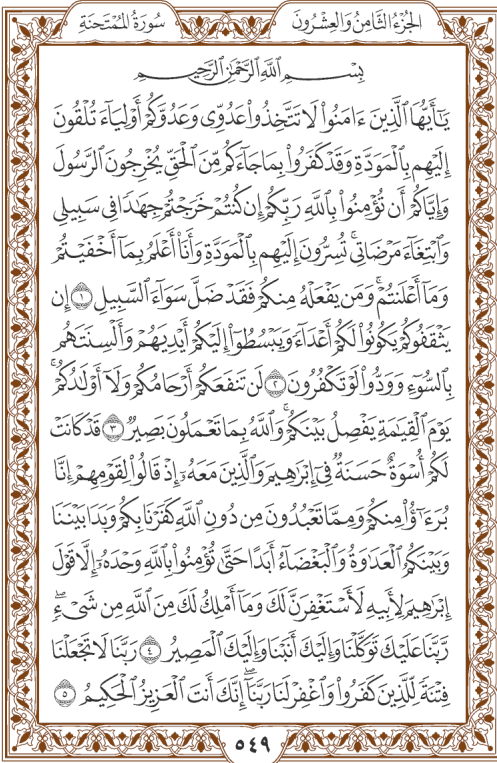 الجزء الثامن والعشرون سورة الممتحنة
بِسْمِ ٱللَّهِ ٱلرَّحْمَٰنِ ٱلرَّحِيمِ
يَٰٓأَيُّهَا ٱلَّذِينَ ءَامَنُوا۟ لَا تَتَّخِذُوا۟ عَدُوِّى وَعَدُوَّكُمْ أَوْلِيَآءَ تُلْقُونَ
إِلَيْهِم بِٱلْمَوَدَّةِ وَقَدْ كَفَرُوا۟ بِمَا جَآءَكُم مِّنَ ٱلْحَقِّ يُخْرِجُونَ ٱلرَّسُولَ
وَإِيَّاكُمْ أَن تُؤْمِنُوا۟ بِٱللَّهِ رَبِّكُمْ إِن كُنتُمْ خَرَجْتُمْ جِهَٰدًا فِى سَبِيلِى
وَٱبْتِغَآءَ مَرْضَاتِى ۚ تُسِرُّونَ إِلَيْهِم بِٱلْمَوَدَّةِ وَأَنَا۠ أَعْلَمُ بِمَآ أَخْفَيْتُمْ
وَمَآ أَعْلَنتُمْ ۚ وَمَن يَفْعَلْهُ مِنكُمْ فَقَدْ ضَلَّ سَوَآءَ ٱلسَّبِيلِ ١ إِن
يَثْقَفُوكُمْ يَكُونُوا۟ لَكُمْ أَعْدَآءً وَيَبْسُطُوٓا۟ إِلَيْكُمْ أَيْدِيَهُمْ وَأَلْسِنَتَهُم
بِٱلسُّوٓءِ وَوَدُّوا۟ لَوْ تَكْفُرُونَ ٢ لَن تَنفَعَكُمْ أَرْحَامُكُمْ وَلَآ أَوْلَٰدُكُمْ ۚ
يَوْمَ ٱلْقِيَٰمَةِ يَفْصِلُ بَيْنَكُمْ ۚ وَٱللَّهُ بِمَا تَعْمَلُونَ بَصِيرٌ ٣ قَدْ كَانَتْ
لَكُمْ أُسْوَةٌ حَسَنَةٌ فِىٓ إِبْرَٰهِيمَ وَٱلَّذِينَ مَعَهُۥٓ إِذْ قَالُوا۟ لِقَوْمِهِمْ إِنَّا
بُرَءَٰٓؤُا۟ مِنكُمْ وَمِمَّا تَعْبُدُونَ مِن دُونِ ٱللَّهِ كَفَرْنَا بِكُمْ وَبَدَا بَيْنَنَا
وَبَيْنَكُمُ ٱلْعَدَٰوَةُ وَٱلْبَغْضَآءُ أَبَدًا حَتَّىٰ تُؤْمِنُوا۟ بِٱللَّهِ وَحْدَهُۥٓ إِلَّا قَوْلَ
إِبْرَٰهِيمَ لِأَبِيهِ لَأَسْتَغْفِرَنَّ لَكَ وَمَآ أَمْلِكُ لَكَ مِنَ ٱللَّهِ مِن شَىْءٍ ۖ
رَّبَّنَا عَلَيْكَ تَوَكَّلْنَا وَإِلَيْكَ أَنَبْنَا وَإِلَيْكَ ٱلْمَصِيرُ ٤ رَبَّنَا لَا تَجْعَلْنَا
فِتْنَةً لِّلَّذِينَ كَفَرُوا۟ وَٱغْفِرْ لَنَا رَبَّنَآ ۖ إِنَّكَ أَنتَ ٱلْعَزِيزُ ٱلْحَكِيمُ ٥
٥٤٩